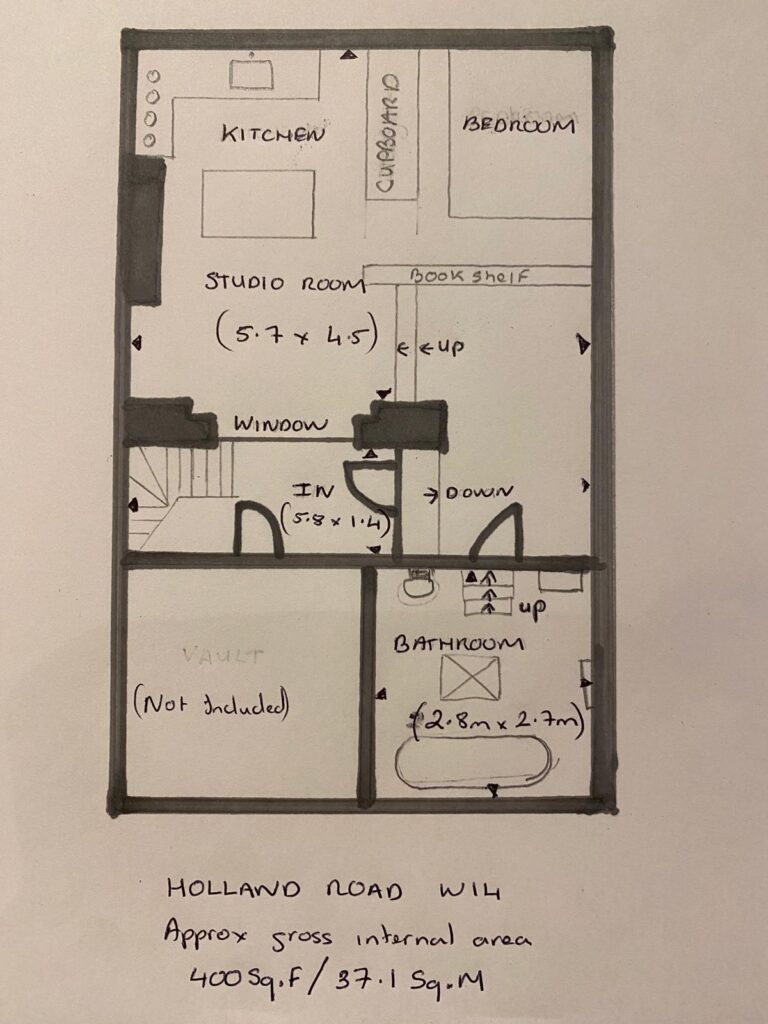 KITCHEN
CUPBOARD
BEDROOM
BOOK Shelf
STUDIO ROOM
(5.7 x 4.5)
up
WINDOW
IN
(5.8 x 1.4)
DOWN
up
BATHROOM
(2.8m x 2.7m)
VAULT
(Not Included)
HOLLAND ROAD W14
Approx gross internal area
400 Sq.F / 37.1 Sq.M